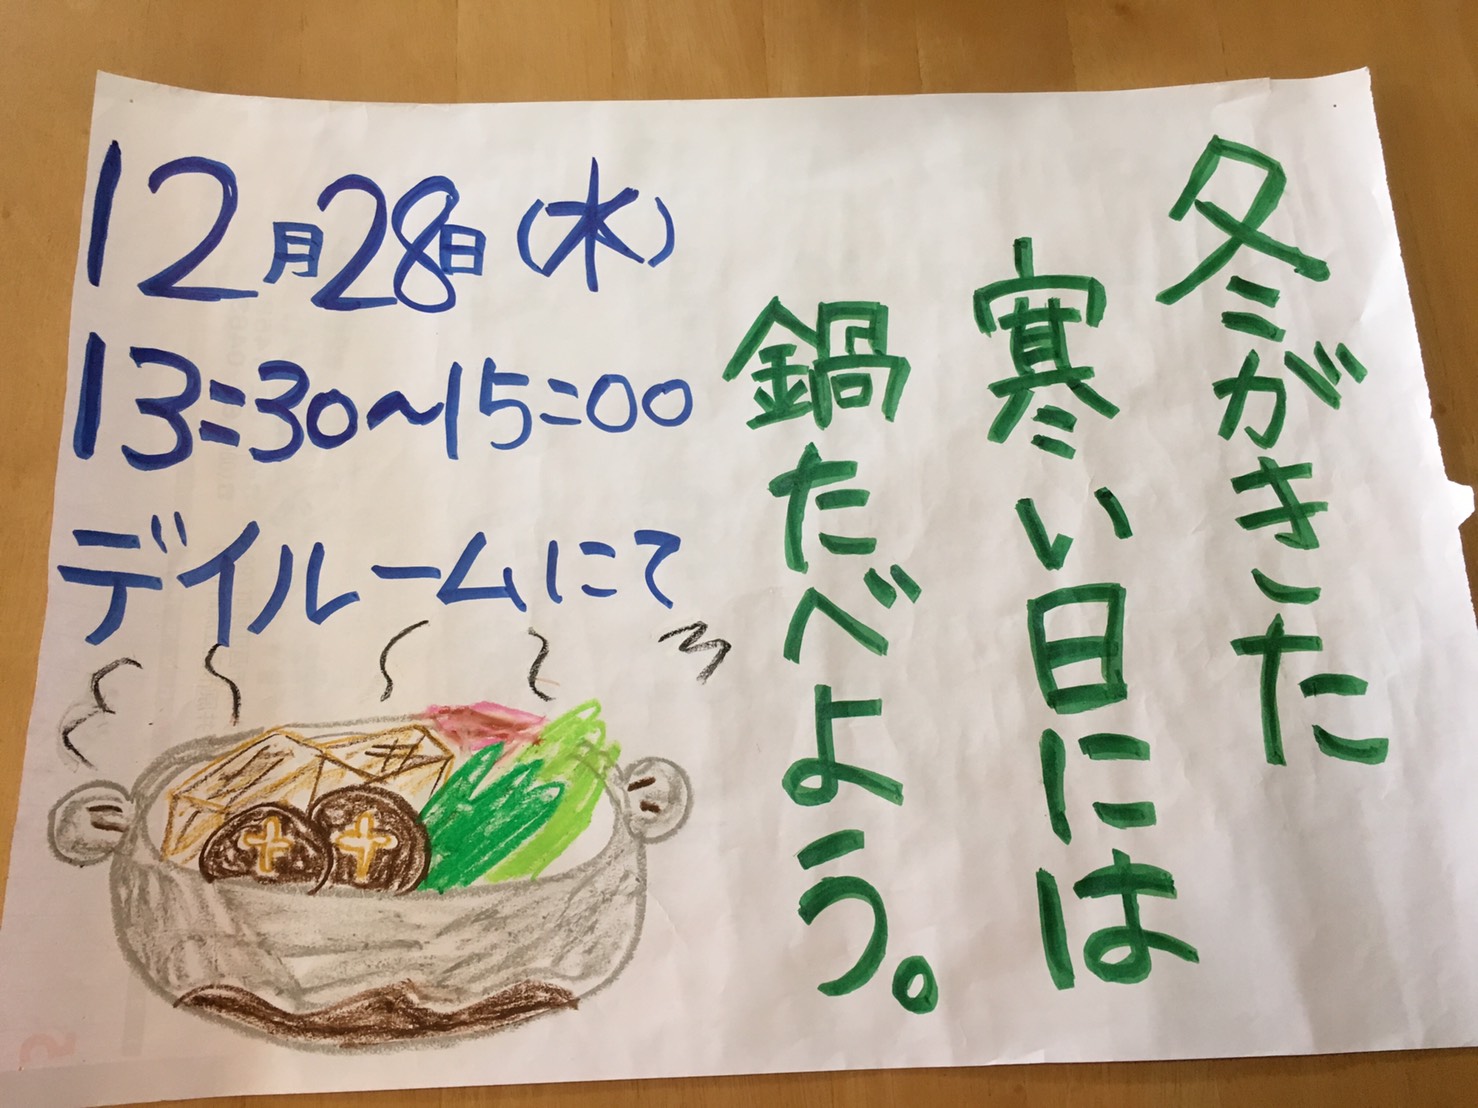 冬がきた
寒い日には
鍋たべよう。
12月28日(水)
13:30〜15:00
デイルームにて